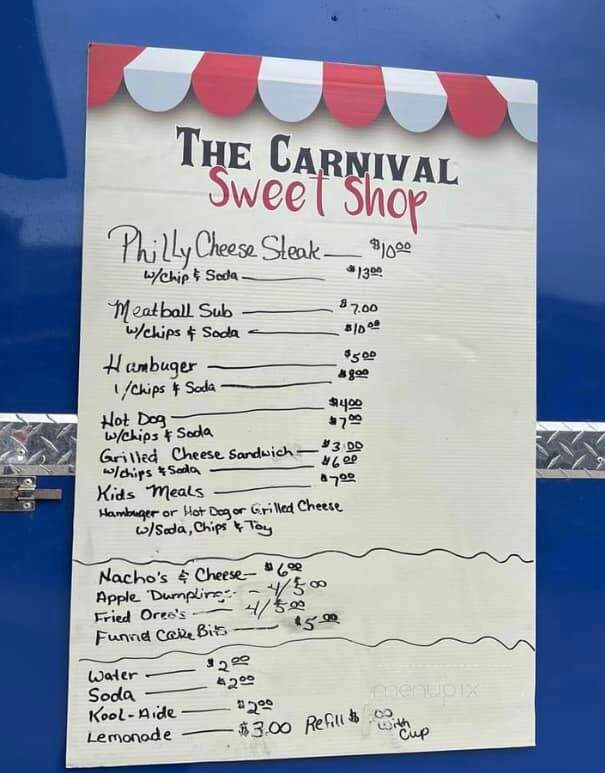 THE CARNIVAL
Sweet Shop
Philly Cheese Steak — $10.00
w/chip & Soda — $13.00
Meatball Sub — $7.00
w/chips & Soda — $10.00
Hambuger — $5.00
1/chips & Soda — $8.00
Hot Dog — $4.00
w/chips & Soda $7.00
Grilled Cheese Sandwich — $3.00
w/chips & Soda — $6.00
Kids Meals — $7.00
Hambuger or Hot Dog or Grilled Cheese
w/Soda, Chips & Toy
Nacho's & Cheese — $6.00
Apple Dumplings — 4/5.00
Fried Oreo's — 4/5.00
Funnel Cake Bits — $5.00
Water — $2.00
Soda — $2.00
Kool-Aide — $2.00
Lemonade — $3.00 Refill $ .00 with cup
menupix